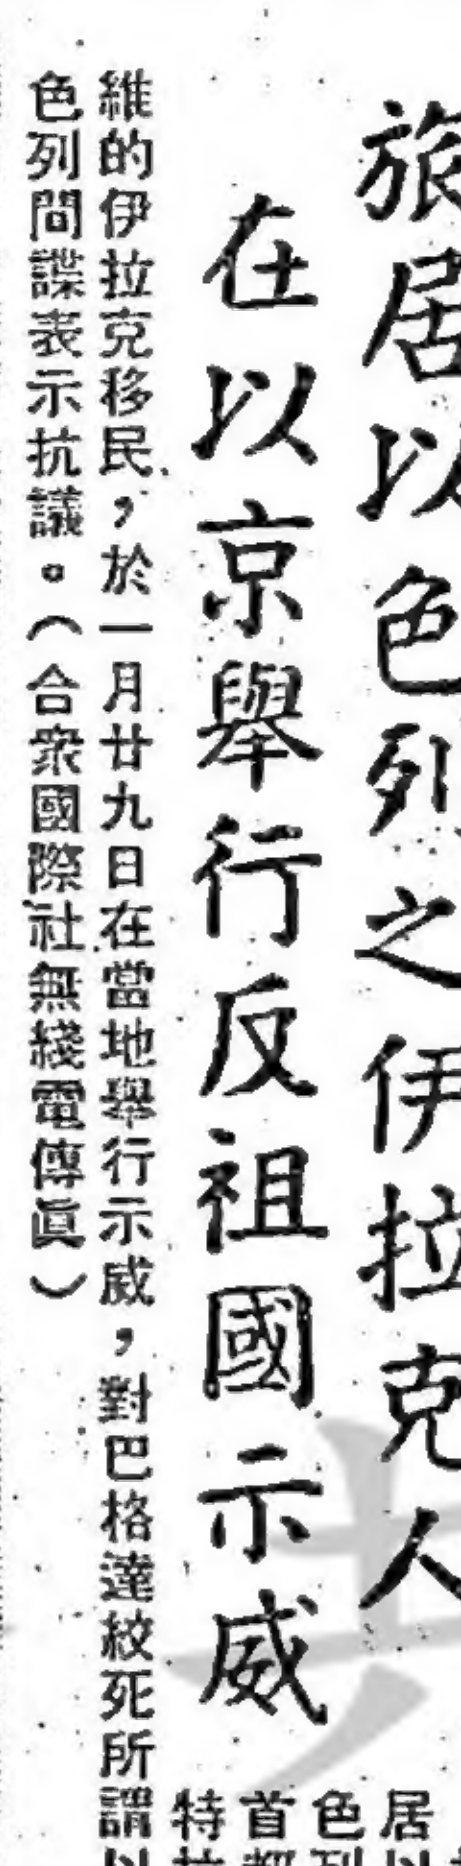 旅居以色列之伊拉克人
在以京舉行反祖國示威
居以
色列
首都
特拉
維的伊拉克移民，於一月廿九日在當地舉行示威，對巴格達絞死所謂以
色列間諜表示抗議。（合衆國際社無綫電傳眞）